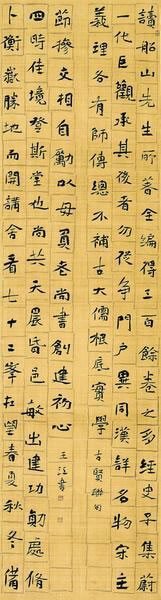 讀船山先生所著全編得三百餘卷之多經史子集蔚
一代巨觀承其後者勿從爭門户異同漢詳名物宋主
義理各有師傳總不補古大儒根底實學 古賢聯句
卜衡嶽勝地而開講舍看七十二峯在望春夏秋冬備
四時佳境登斯堂也尚共天晨昏邑敏出建功勛處脩
節撡交相自勵以毋負老尚書創建初心 王江書